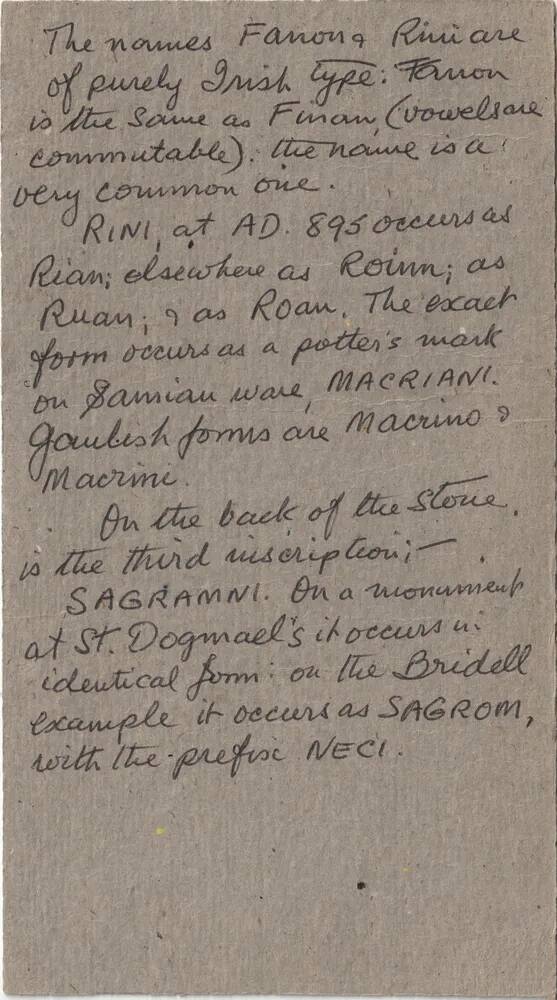 The names Fanon & Rini are
of purely Irish type: Fanon
is the same as Finan, (vowels are
commutable). The name is a
very common one.
RINI, at AD. 895 occurs as
Rian; elsewhere as Roinn; as
Ruan; & as Roan. The exact
form occurs as a potter's mark
on Samian ware, MACRIANI.
Gaulish forms are Macrino &
Macrini.
On the back of the stone,
is the third inscription;—
SAGRAMNI. On a monument
at St. Dogmael's it occurs in
identical form: on the Bridell
example it occurs as SAGROM,
with the prefix NECI.